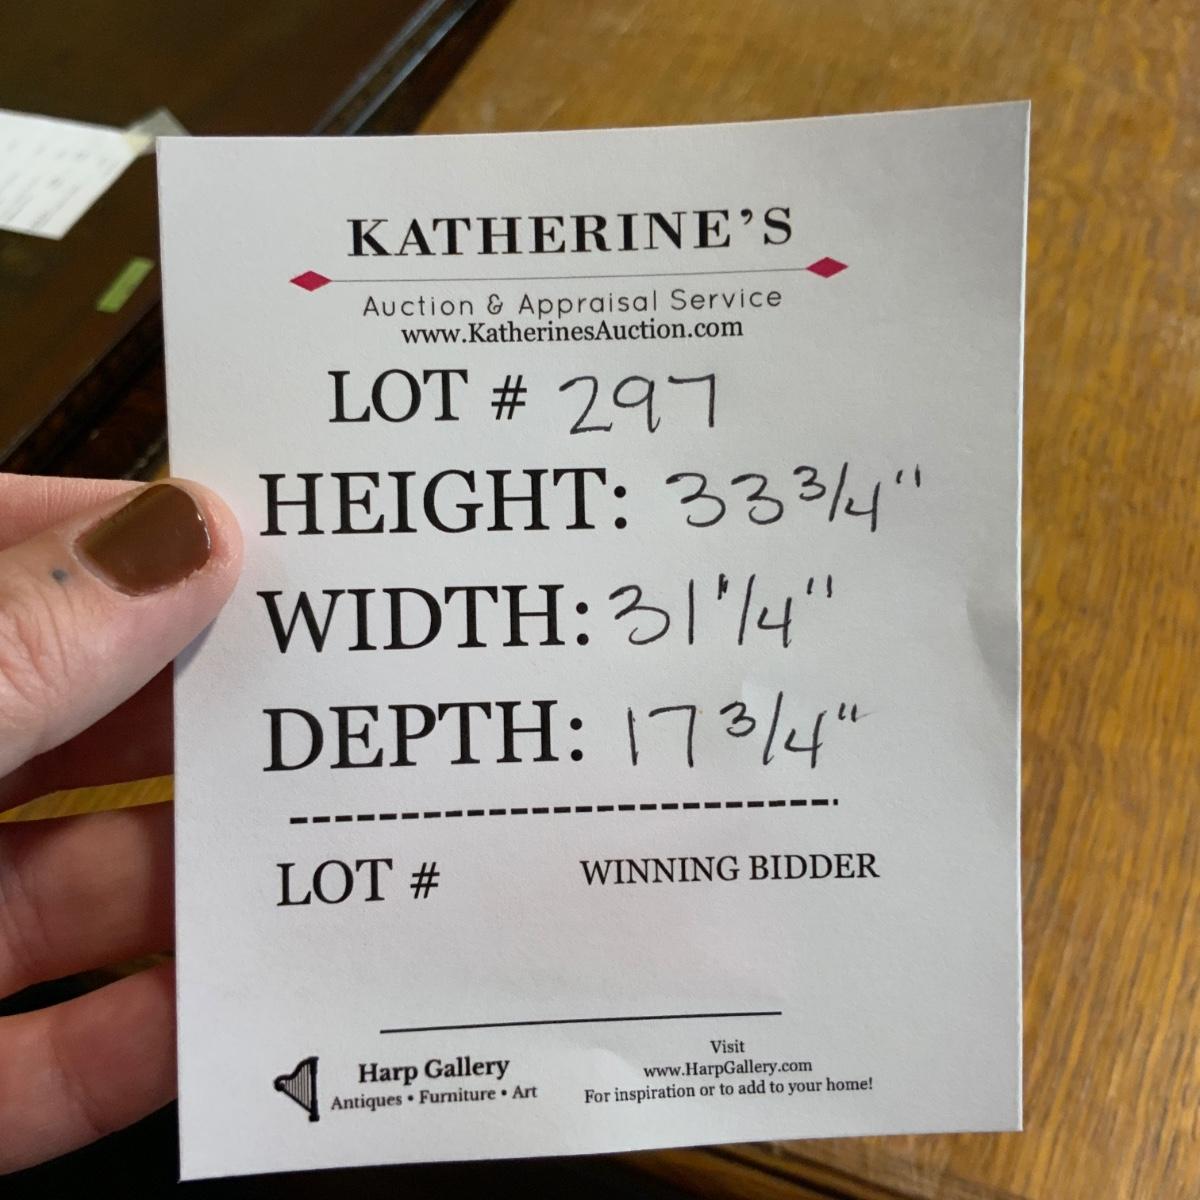 KATHERINE'S
Auction & Appraisal Service
www.KatherinesAuction.com
LOT # 297
HEIGHT: 33 3/4"
WIDTH: 31 1/4"
DEPTH: 17 3/4"
LOT #
WINNING BIDDER
Harp Gallery
Antiques • Furniture • Art
Visit
www.HarpGallery.com
For inspiration or to add to your home!